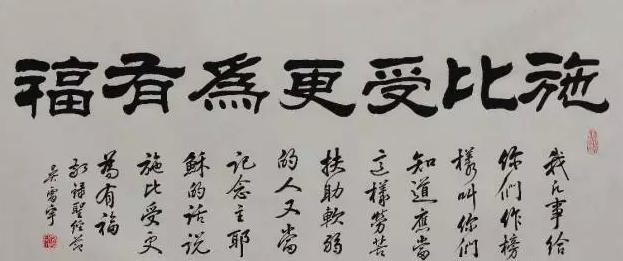 施比受更為有福
我凡事給
你們作榜
樣叫你們
知道應當
這樣勞苦
扶助軟弱
的人又當
記念主耶
穌的話說
施比受更
為有福
聖經